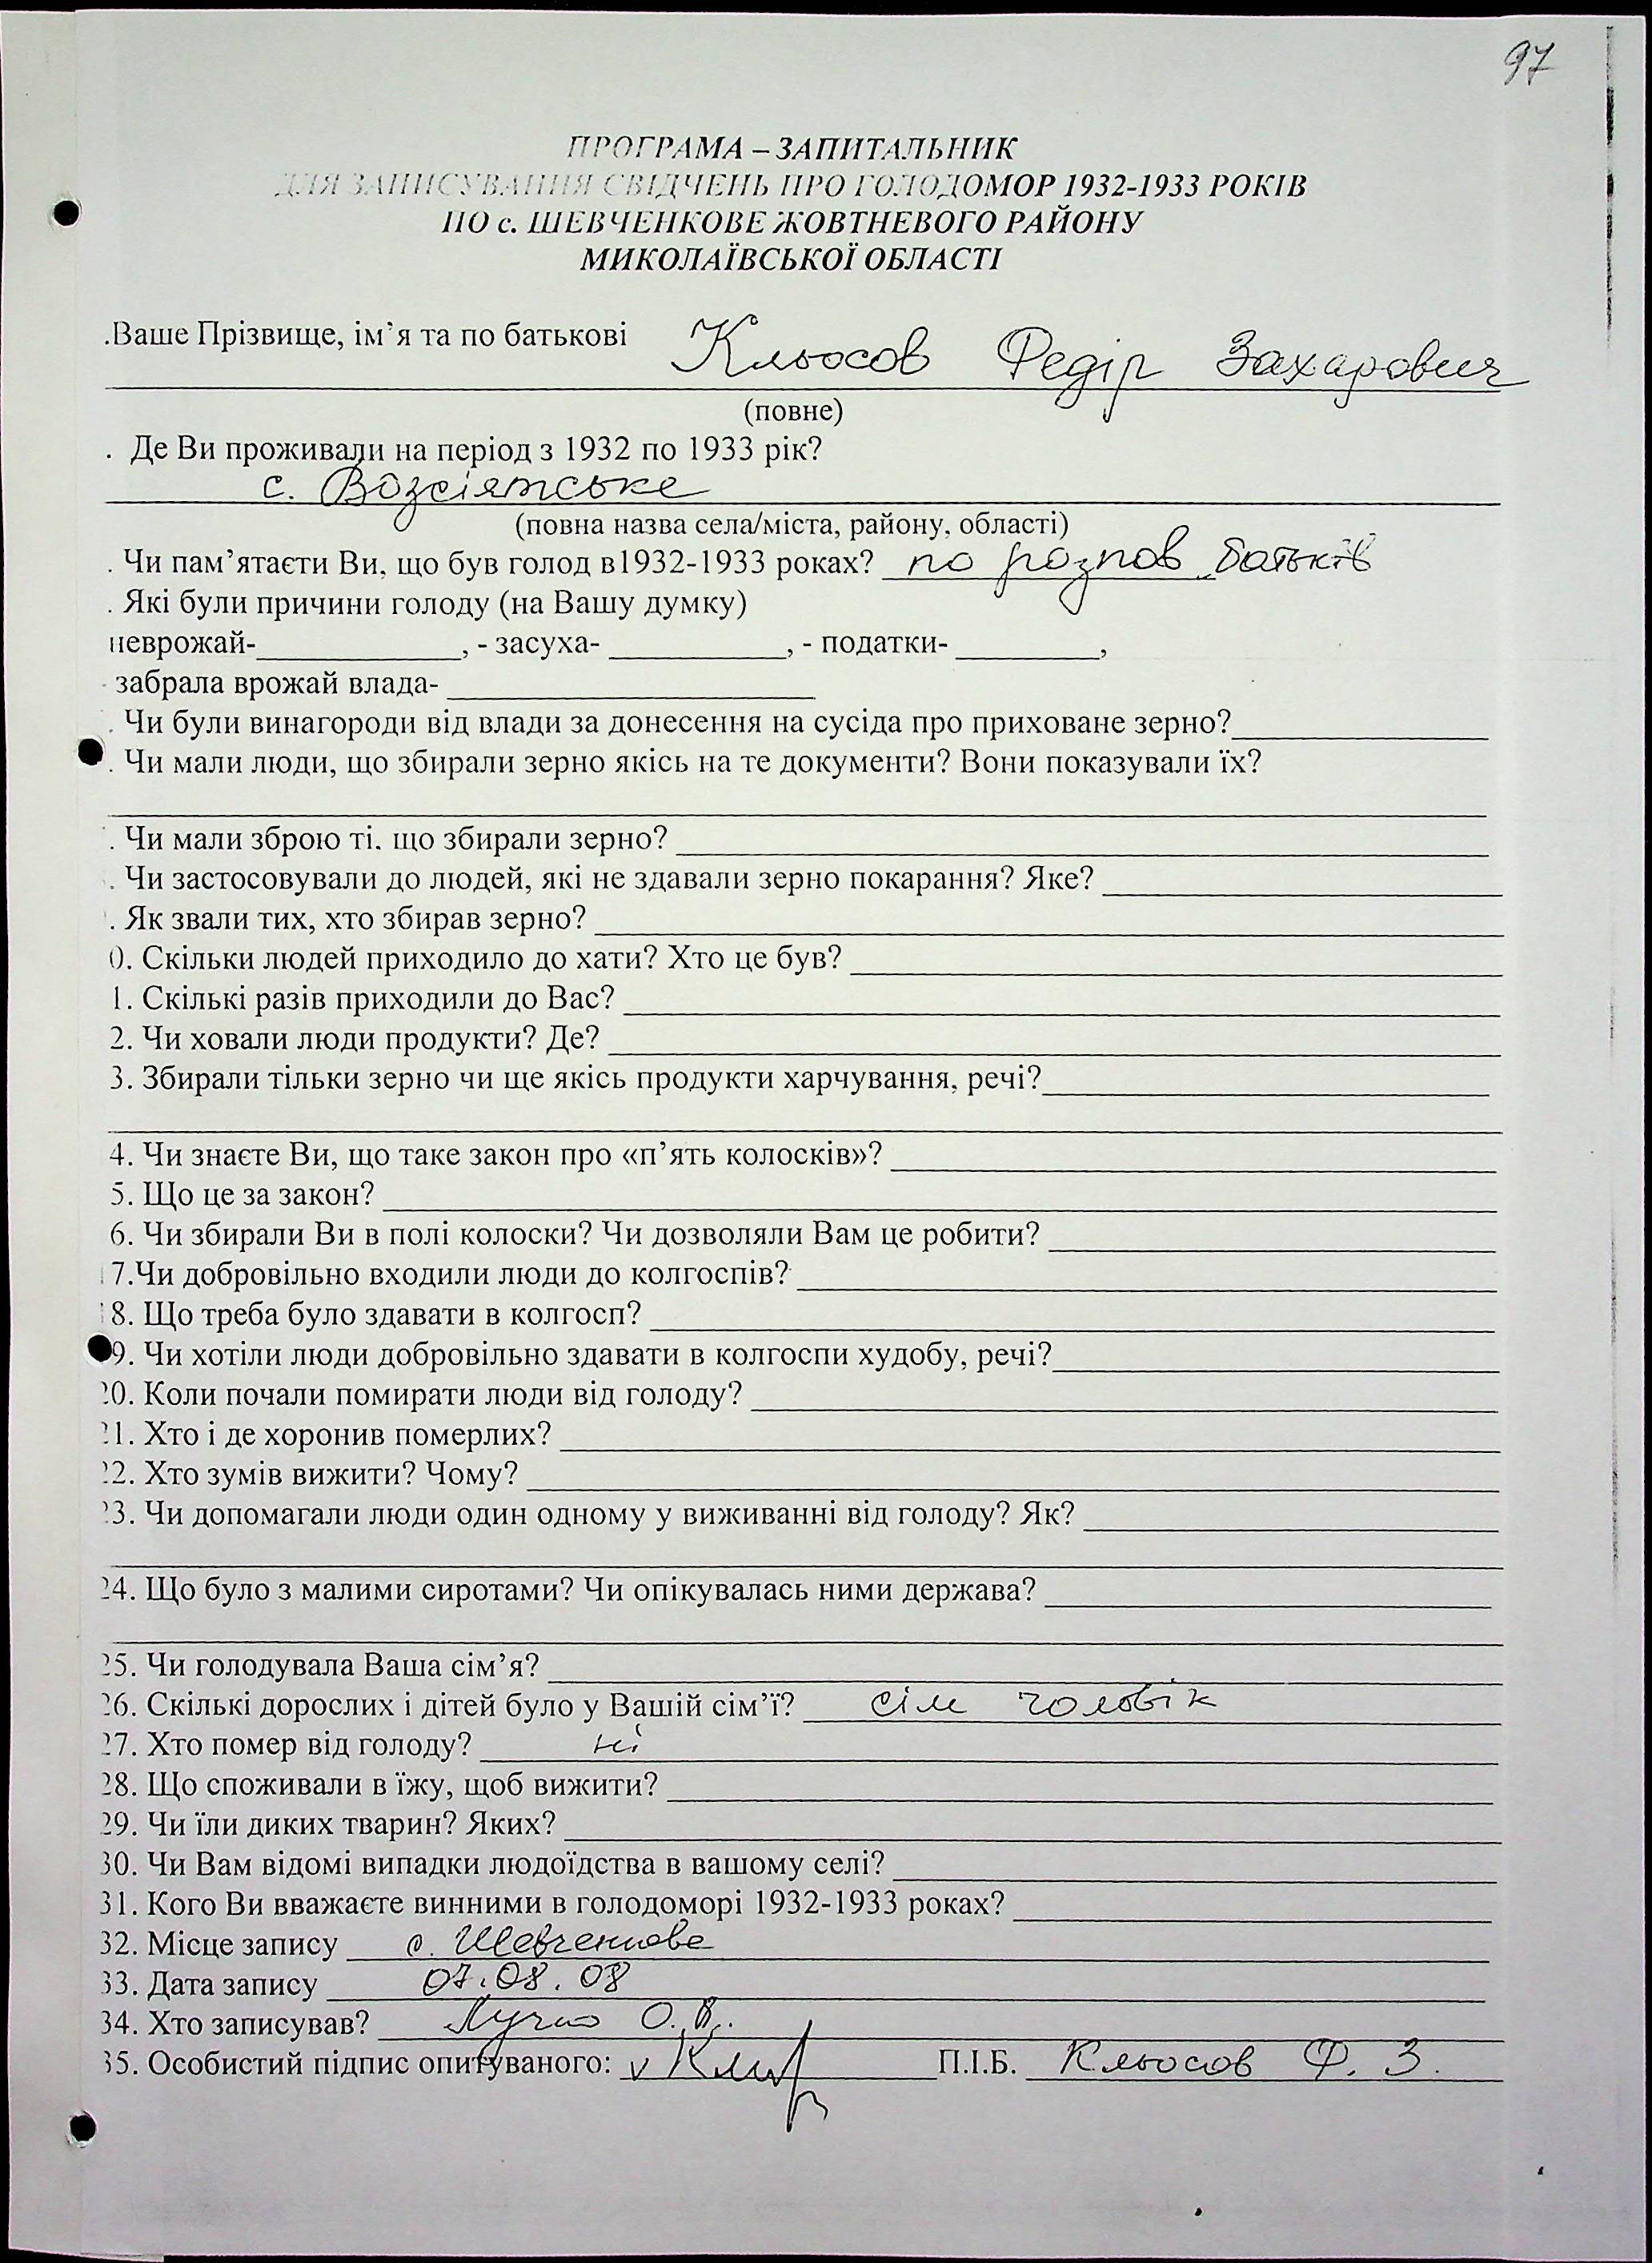 97
ПРОГРАМА – ЗАПИТАЛЬНИК
ДЛЯ ЗАПИСУВАННЯ СВІДЧЕНЬ ПРО ГОЛОДОМОР 1932-1933 РОКІВ
ПО с. ШЕВЧЕНКОВЕ ЖОВТНЕВОГО РАЙОНУ
МИКОЛАЇВСЬКОЇ ОБЛАСТІ
.Ваше Прізвище, ім’я та по батькові Кльосов Федір Захарович
(повне)
. Де Ви проживали на період з 1932 по 1933 рік?
с. Возсіятське
(повна назва села/міста, району, області)
. Чи пам’ятаєти Ви, що був голод в1932-1933 роках? по розпов. батьків
. Які були причини голоду (на Вашу думку)
неврожай-____________, - засуха- ___________, - податки- _________,
- забрала врожай влада- ______________________
. Чи були винагороди від влади за донесення на сусіда про приховане зерно?_______________
. Чи мали люди, що збирали зерно якісь на те документи? Вони показували їх?
. Чи мали зброю ті. що збирали зерно?
. Чи застосовували до людей, які не здавали зерно покарання? Яке?
. Як звали тих, хто збирав зерно?
0. Скільки людей приходило до хати? Хто це був?
1. Скількі разів приходили до Вас?
2. Чи ховали люди продукти? Де?
3. Збирали тільки зерно чи ще якісь продукти харчування, речі?
4. Чи знаєте Ви, що таке закон про «п’ять колосків»?
5. Що це за закон?
6. Чи збирали Ви в полі колоски? Чи дозволяли Вам це робити?
17.Чи добровільно входили люди до колгоспів?
18. Що треба було здавати в колгосп?
9. Чи хотіли люди добровільно здавати в колгоспи худобу, речі?
20. Коли почали помирати люди від голоду?
21. Хто і де хоронив померлих?
22. Хто зумів вижити? Чому?
23. Чи допомагали люди один одному у виживанні від голоду? Як?
24. Що було з малими сиротами? Чи опікувалась ними держава?
25. Чи голодувала Ваша сім’я?
26. Скількі дорослих і дітей було у Вашій сім’ї? сім чоловік
27. Хто помер від голоду? ні
28. Що споживали в їжу, щоб вижити?
29. Чи їли диких тварин? Яких?
30. Чи Вам відомі випадки людоїдства в вашому селі?
31. Кого Ви вважаєте винними в голодоморі 1932-1933 роках?
32. Місце запису с. Шевченкове
33. Дата запису 07.08.08
34. Хто записував? О.В.
35. Особистий підпис опитуваного: v П.І.Б. Кльосов Ф. З.